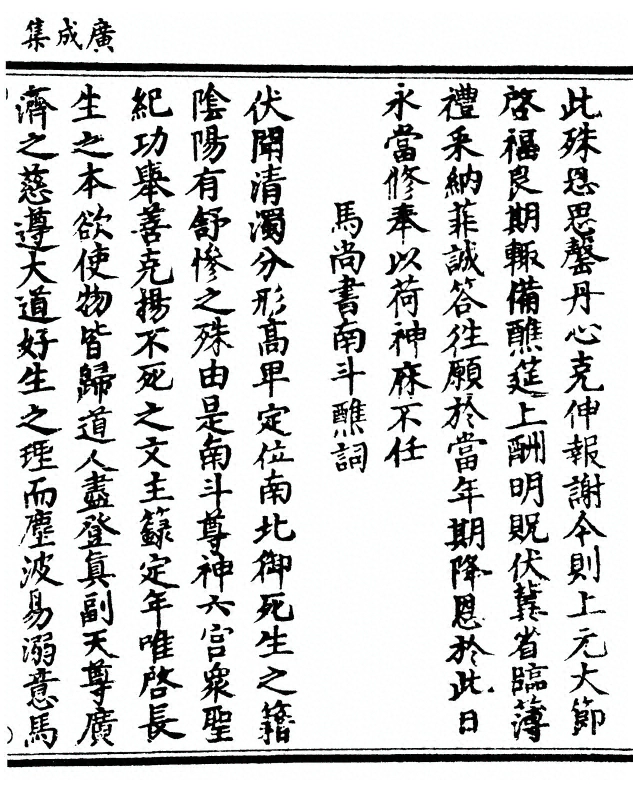 廣成集
此殊恩思罄丹心克伸報謝今則上元大節
啓福良期輙備醮筵上酬明貺伏冀省臨薄
禮采納菲誠答往願於當年期降恩於此日
永當修奉以荷神庥不任
馬尚書南斗醮詞
伏聞清濁分形高卑定位南北御死生之籍
陰陽有舒慘之殊由是南斗尊神六宫衆聖
紀功舉善克揚不死之文主籙定年唯啓長
生之本欲使物皆歸道人盡登真副天尊廣
濟之慈遵大道好生之理而塵波易溺意馬